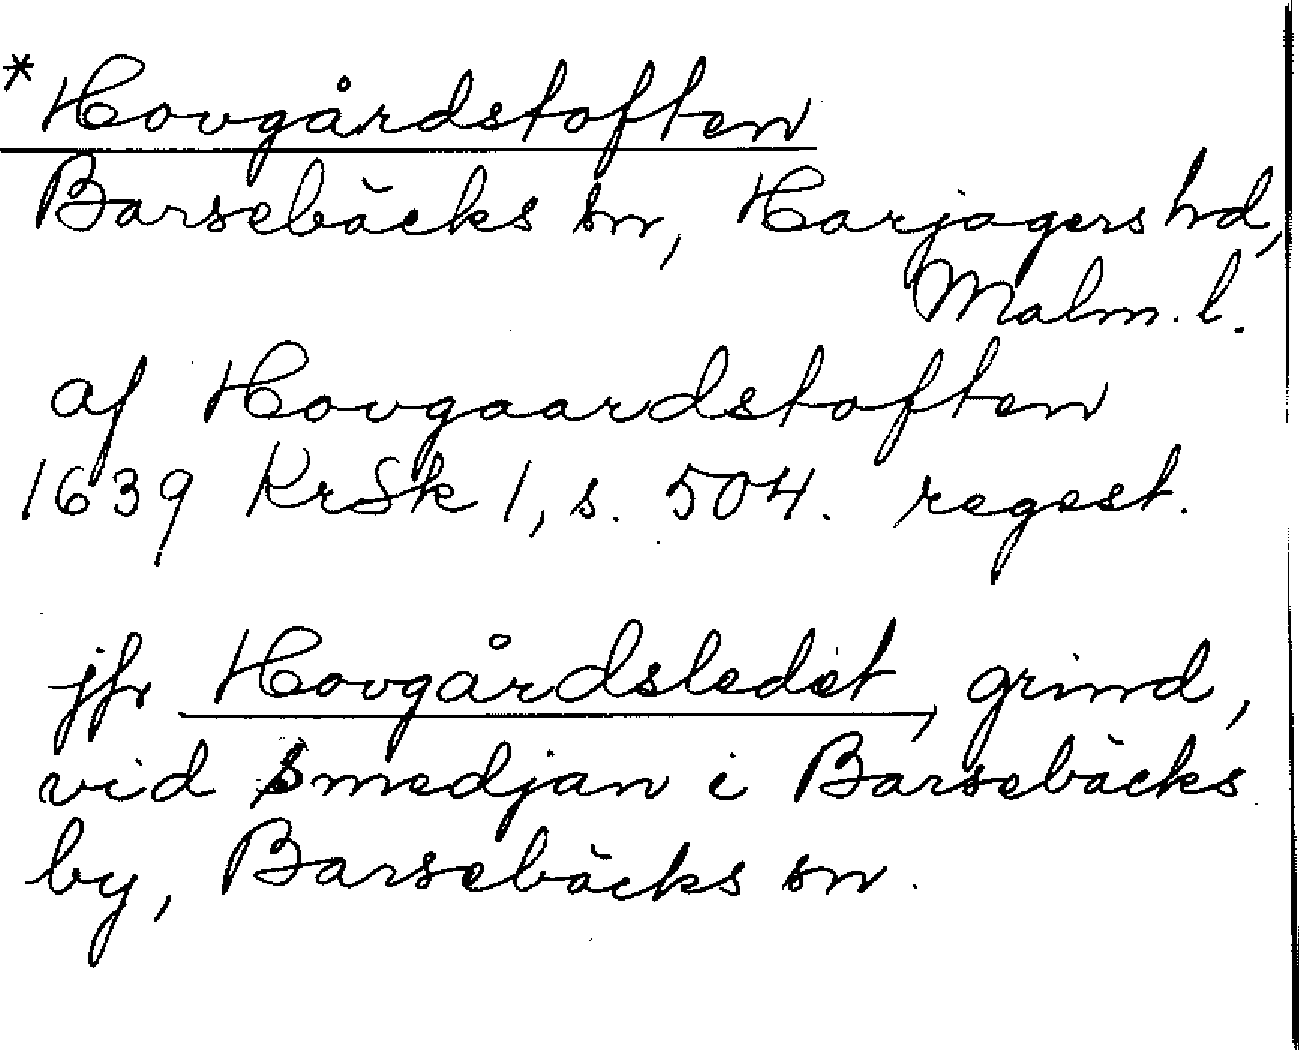 *Hovgårdstoften
Barsebäcks sn, Harjagers hd,
Malm. l.
af Hovgaardstoften
1639 KrSk 1, s. 504. regest.
jfr Hovgårdsledet, grind,
vid smedjan i Barsebäcks
by, Barsebäcks sn.